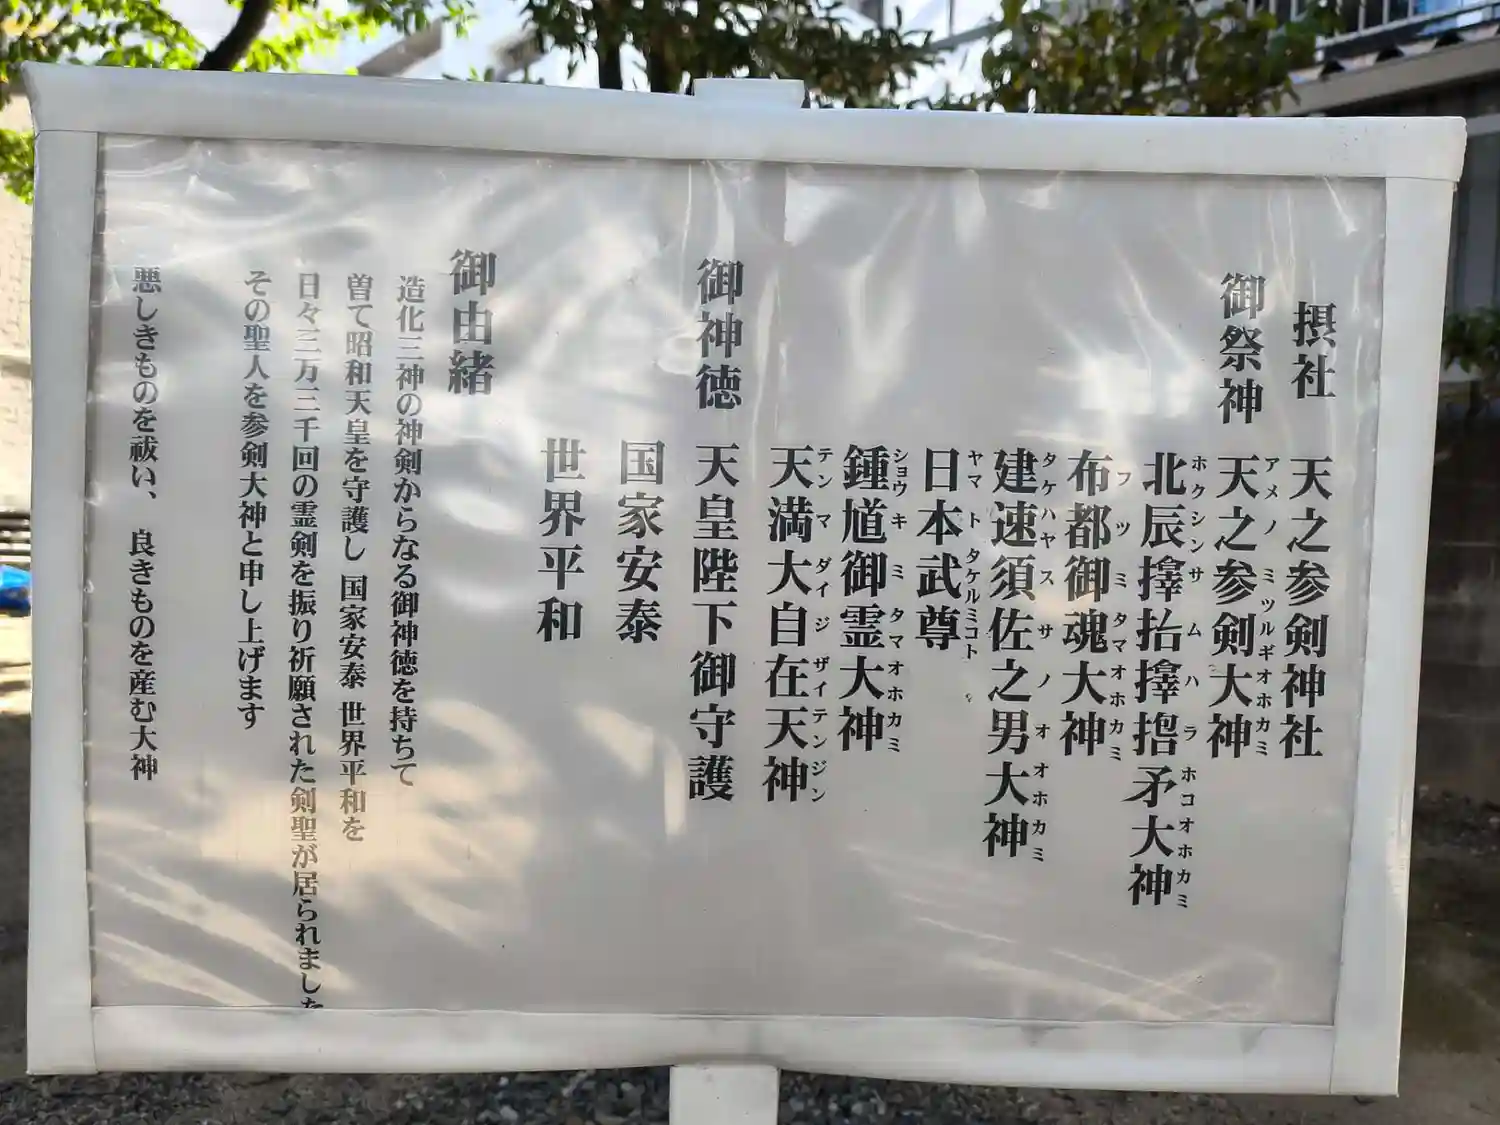 摂社 天之参剣神社
御祭神 天之参剣大神
アメノミツルギオホカミ
北辰擇抬擇撘矛大神
ホクシンサムハラホコオホカミ
布都御魂大神
フツミタマオホカミ
建速須佐之男大神
タケハヤスサノオオホカミ
日本武尊
ヤマトタケルミコト
鍾馗御霊大神
ショウキミタマオホカミ
天満大自在天神
テンマダイジザイテンジン
御神徳 天皇陛下御守護
国家安泰
世界平和
御由緒
造化三神の神剣からなる御神徳を持ちて
曽て昭和天皇を守護し 国家安泰 世界平和を
日々三万三千回の霊剣を振り祈願された剣聖が居られました
その聖人を参剣大神と申し上げます
悪しきものを祓い、 良きものを産む大神